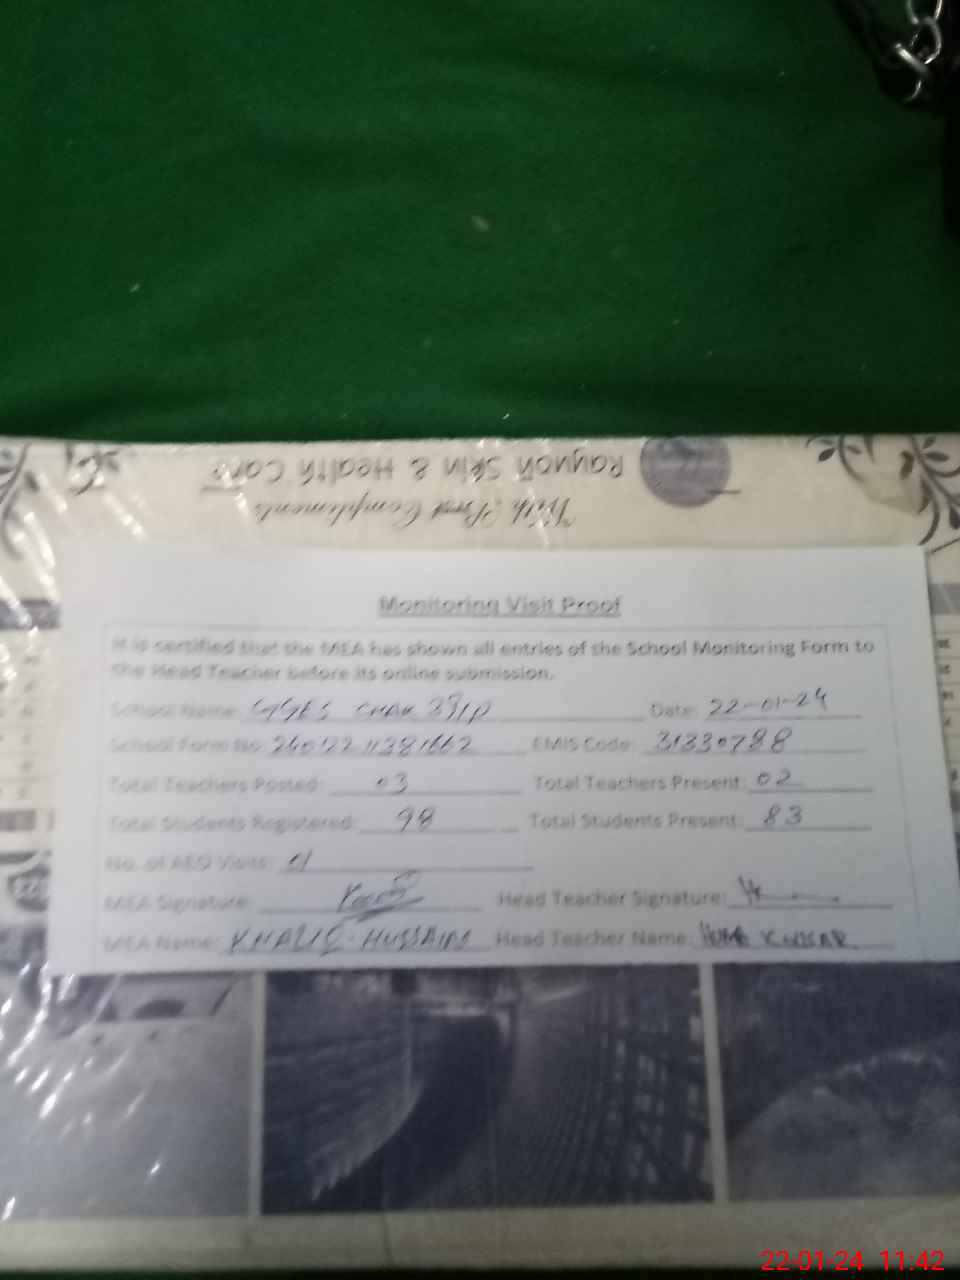 Rayyon Skin & Health Care
With Best Compliments
Monitoring Visit Proof
It is certified that the MEA has shown all entries of the School Monitoring Form to
the Head Teacher before its online submission.
School Name: GGES CHAK 39/P Date: 22-01-24
School Form No: EMIS Code: 31330788
Total Teachers Posted: 03 Total Teachers Present: 02
Total Students Registered: 98 Total Students Present: 83
No. of AEO Visits: 01
MEA Signature: Head Teacher Signature:
MEA Name: KHALIQ HUSSAIN Head Teacher Name:
22-01-24 11:42